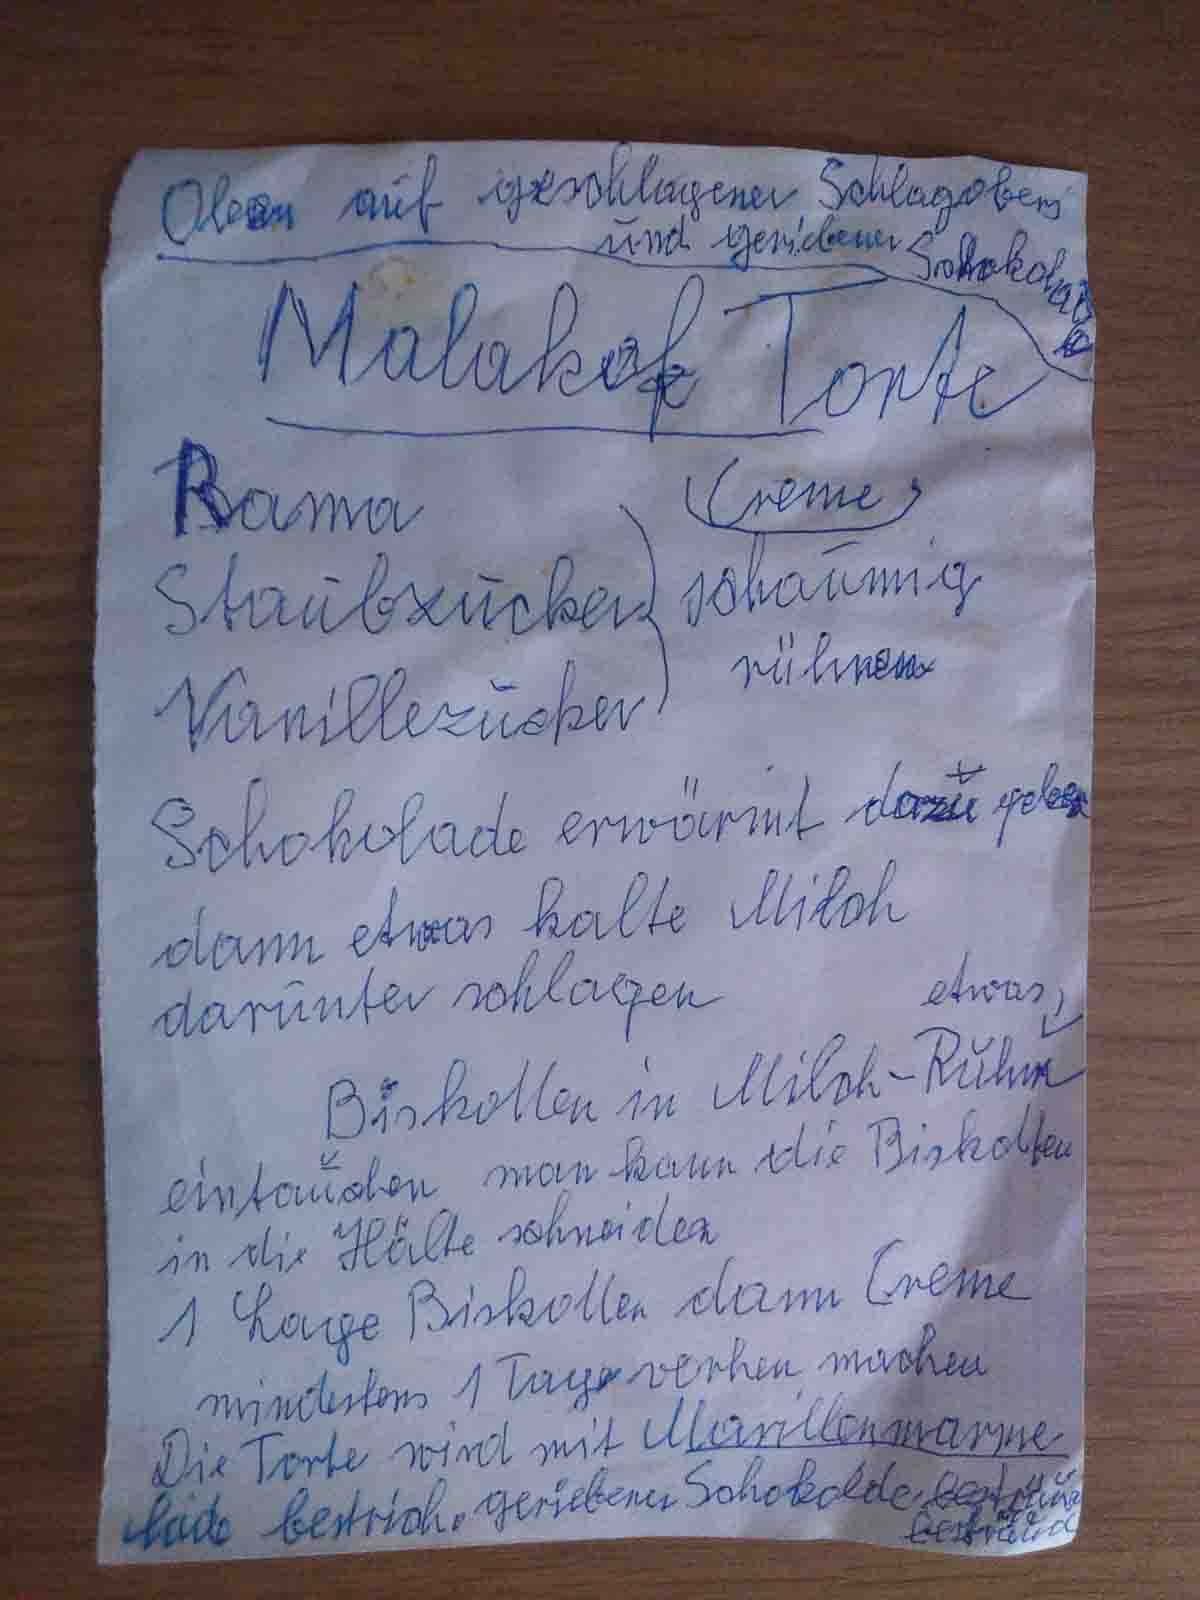 Oben auf geschlagener Schlagobers
und geriebener Schokolade
Malakof Torte
Rama
Creme
Staubzucker
schaumig
rühren
Vanillezucker
Schokolade erwärmt dazu geben
dann etwas kalte Milch
darunter schlagen
etwas
Biskotten in Milch-Ruhm
eintauchen man kann die Biskotten
in die Hälte schneiden
1 Lage Biskotten dann Creme
mindestens 1 Tage vorhen machen
Die Torte wird mit Marillenmarme
lade bestrich. geriebener Schokolde